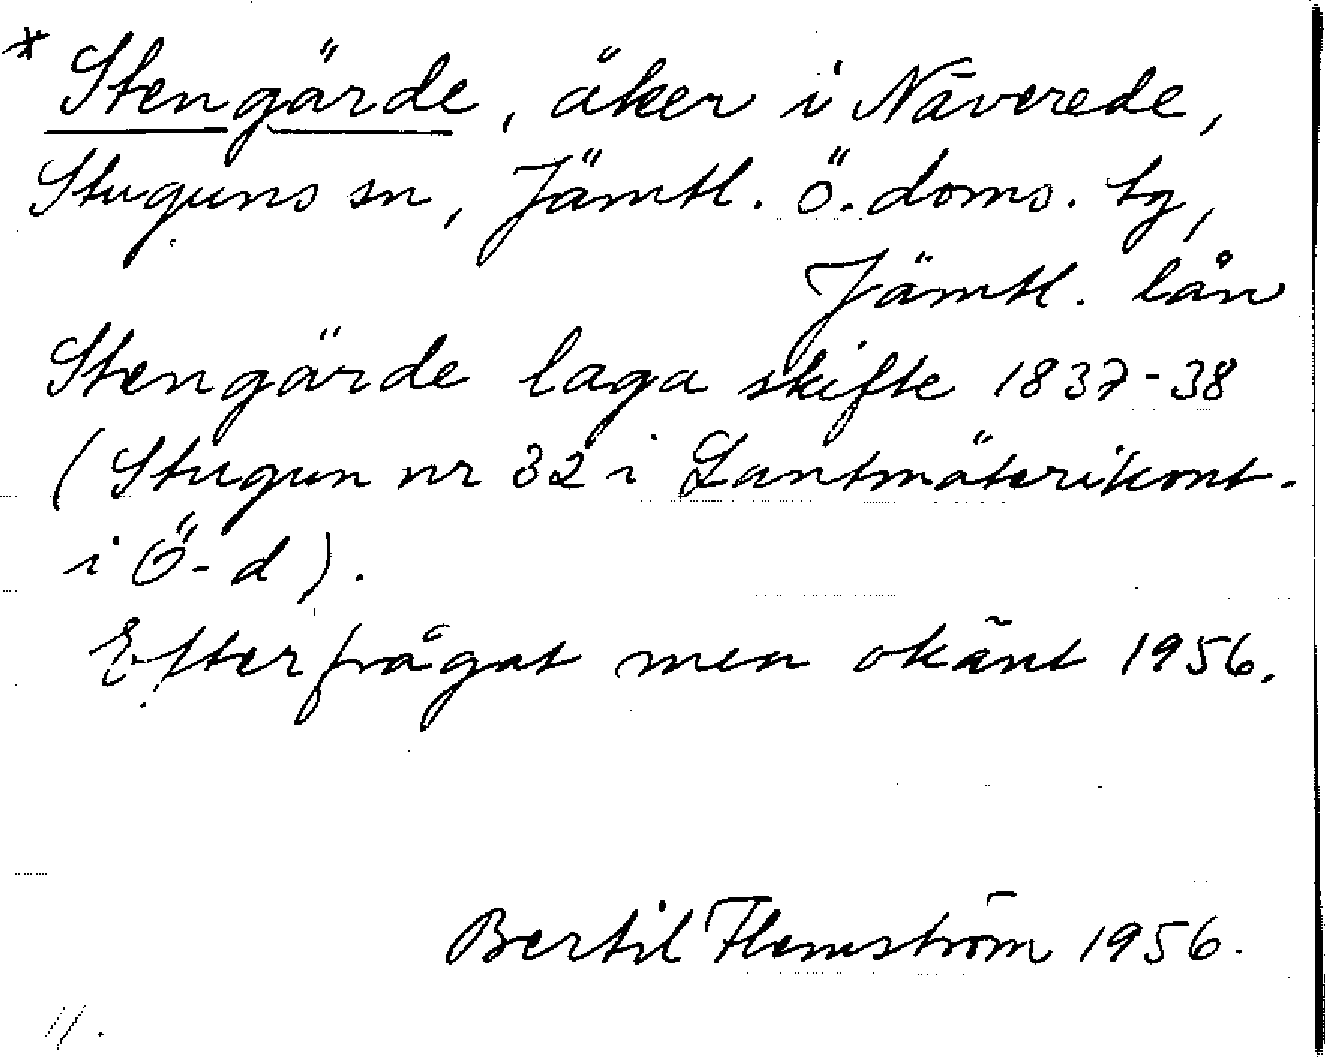 * Stengärde, åker i Näverede,
Stuguns sn, Jämtl. ö. doms. tg,
Jämtl. län
Stengärde laga skifte 1837-38
(Stugun nr 32 i Lantmäterikont.
i Ö-d).
Efterfrågat men okänt 1956.
Bertil Flemström 1956.